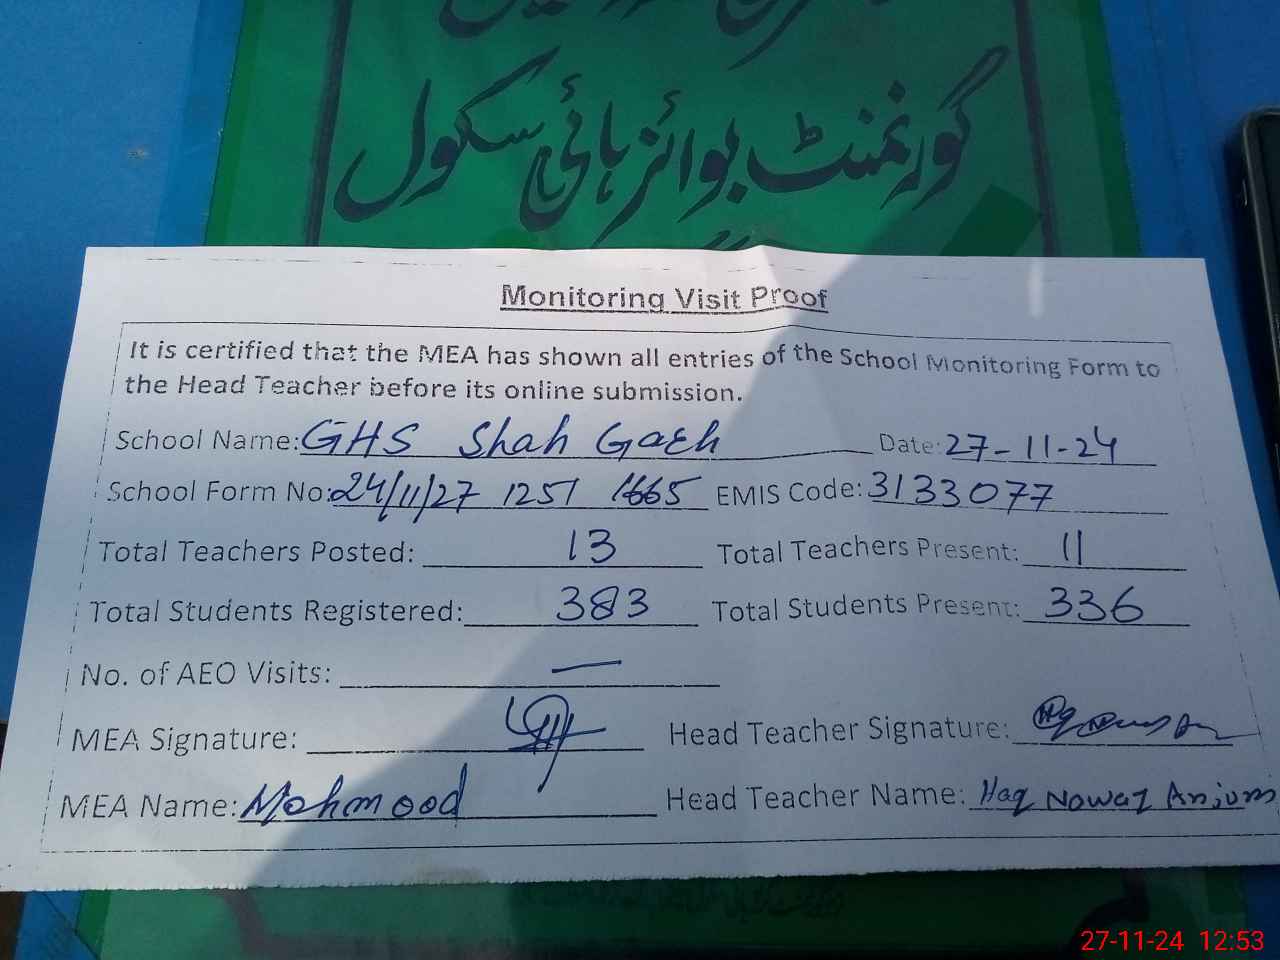 گورنمنٹ بوائز ہائی سکول
Monitoring Visit Proof
It is certified that the MEA has shown all entries of the School Monitoring Form to
the Head Teacher before its online submission.
School Name: GHS Shah Garh Date: 27-11-24
School Form No: 24/11/27 1251 1665 EMIS Code: 3133077
Total Teachers Posted: 13 Total Teachers Present: 11
Total Students Registered: 383 Total Students Present: 336
No. of AEO Visits: —
MEA Signature: Head Teacher Signature:
MEA Name: Mahmood Head Teacher Name: Haq Nawaz Anjum
27-11-24 12:53